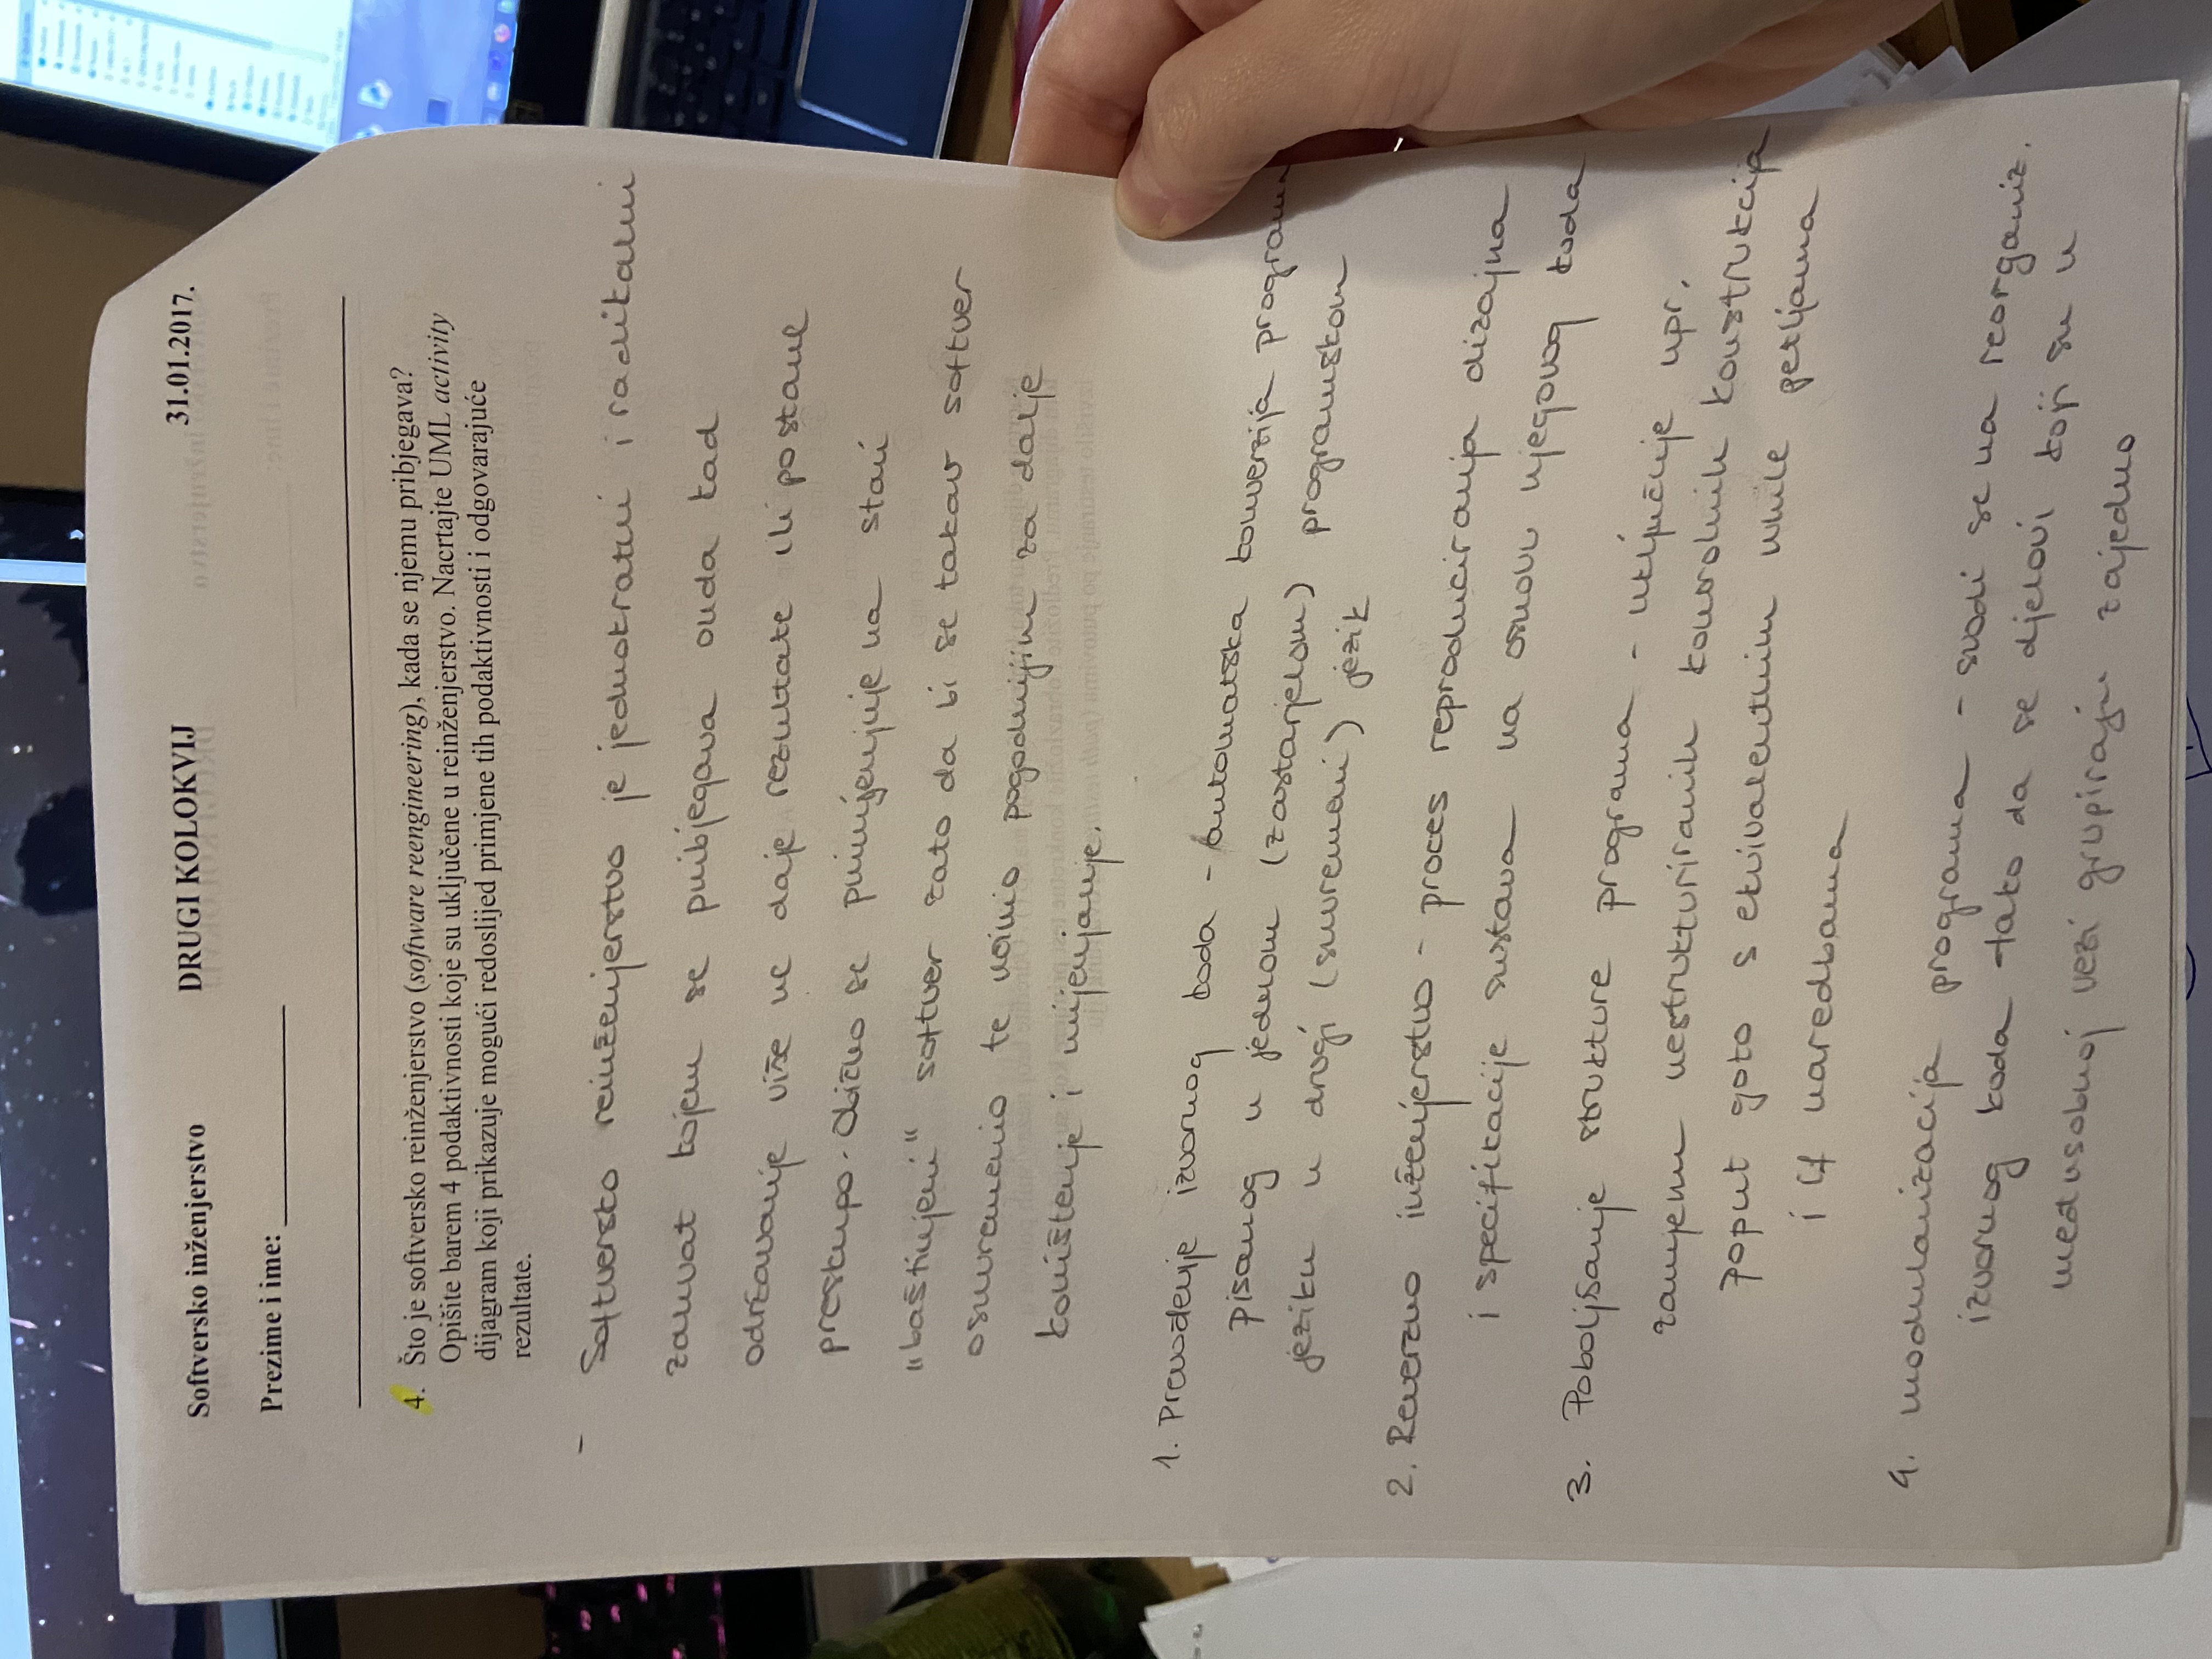 Softversko inženjerstvo DRUGI KOLOKVIJ 31.01.2017.
Prezime i ime:
4. Što je softversko reinženjerstvo (software reengineering), kada se njemu pribjegava?
Opišite barem 4 podaktivnosti koje su uključene u reinženjerstvo. Nacrtajte UML activity
dijagram koji prikazuje mogući redoslijed primjene tih podaktivnosti i odgovarajuće
rezultate.
- Softversko reinženjerstvo je jednokratni i radikalni
zahvat kojem se pribjegava onda kad
održavanje više ne daje rezultate ili postane
preskupo. Obično se primjenjuje na stari
"baštinjeni" softver zato da bi se takav softver
osuvremenio te učinio pogodnijim za dalje
korištenje i mijenjanje.
1. Prevođenje izvornog koda - automatska konverzija programa
pisanog u jednom (zastarjelom) programskom
jeziku u drugi (suvremeni) jezik
2. Reverzno inženjerstvo - proces reproduciranja dizajna
i specifikacije sustava na osnovu njegovog koda
3. Poboljšanje strukture programa - uključuje npr.
zamjenu nestrukturiranih kontrolnih konstrukcija
poput goto s ekvivalentnim while petljama
i if naredbama
4. modularizacija programa - svodi se na reorganiz.
izvornog koda tako da se djelovi koji su u
međusobnoj vezi grupiraju zajedno